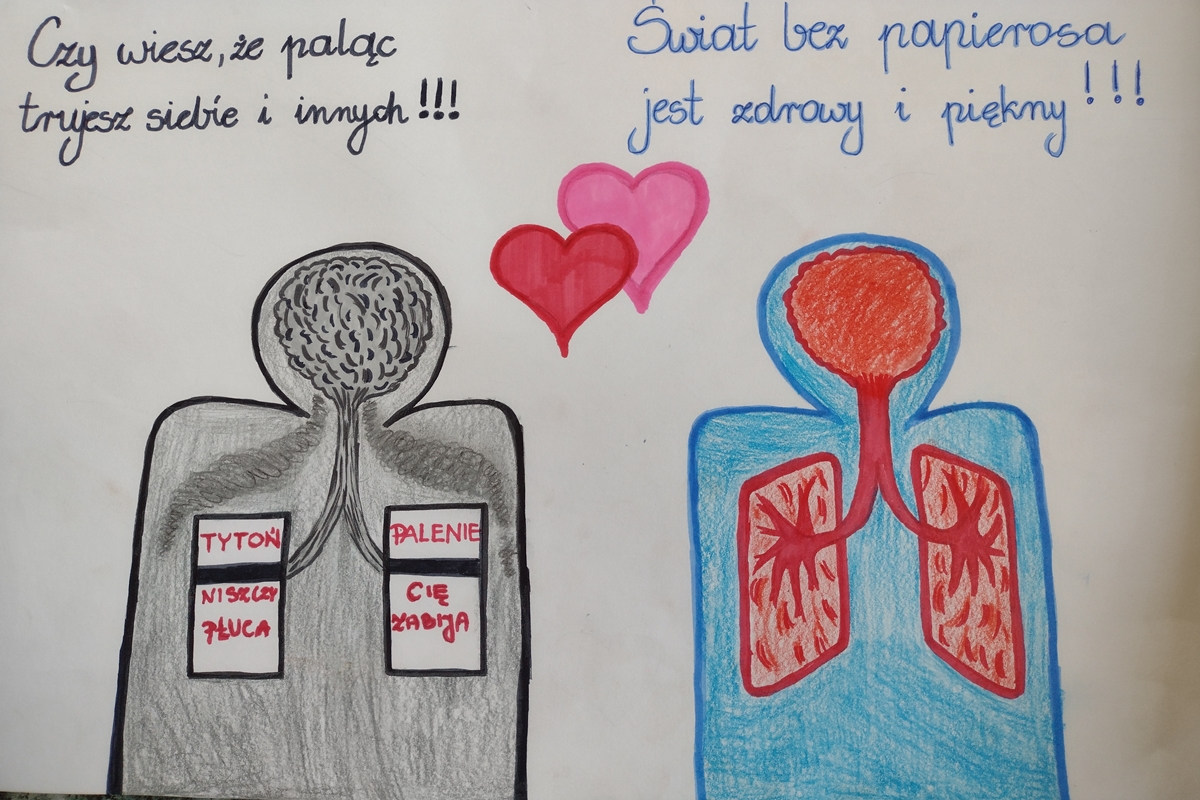 Czy wiesz, że paląc
trujesz siebie i innych!!!
Świat bez papierosa
jest zdrowy i piękny!!!
TYTOŃ
NISZCZY
PŁUCA
PALENIE
CIĘ
ZABIJA